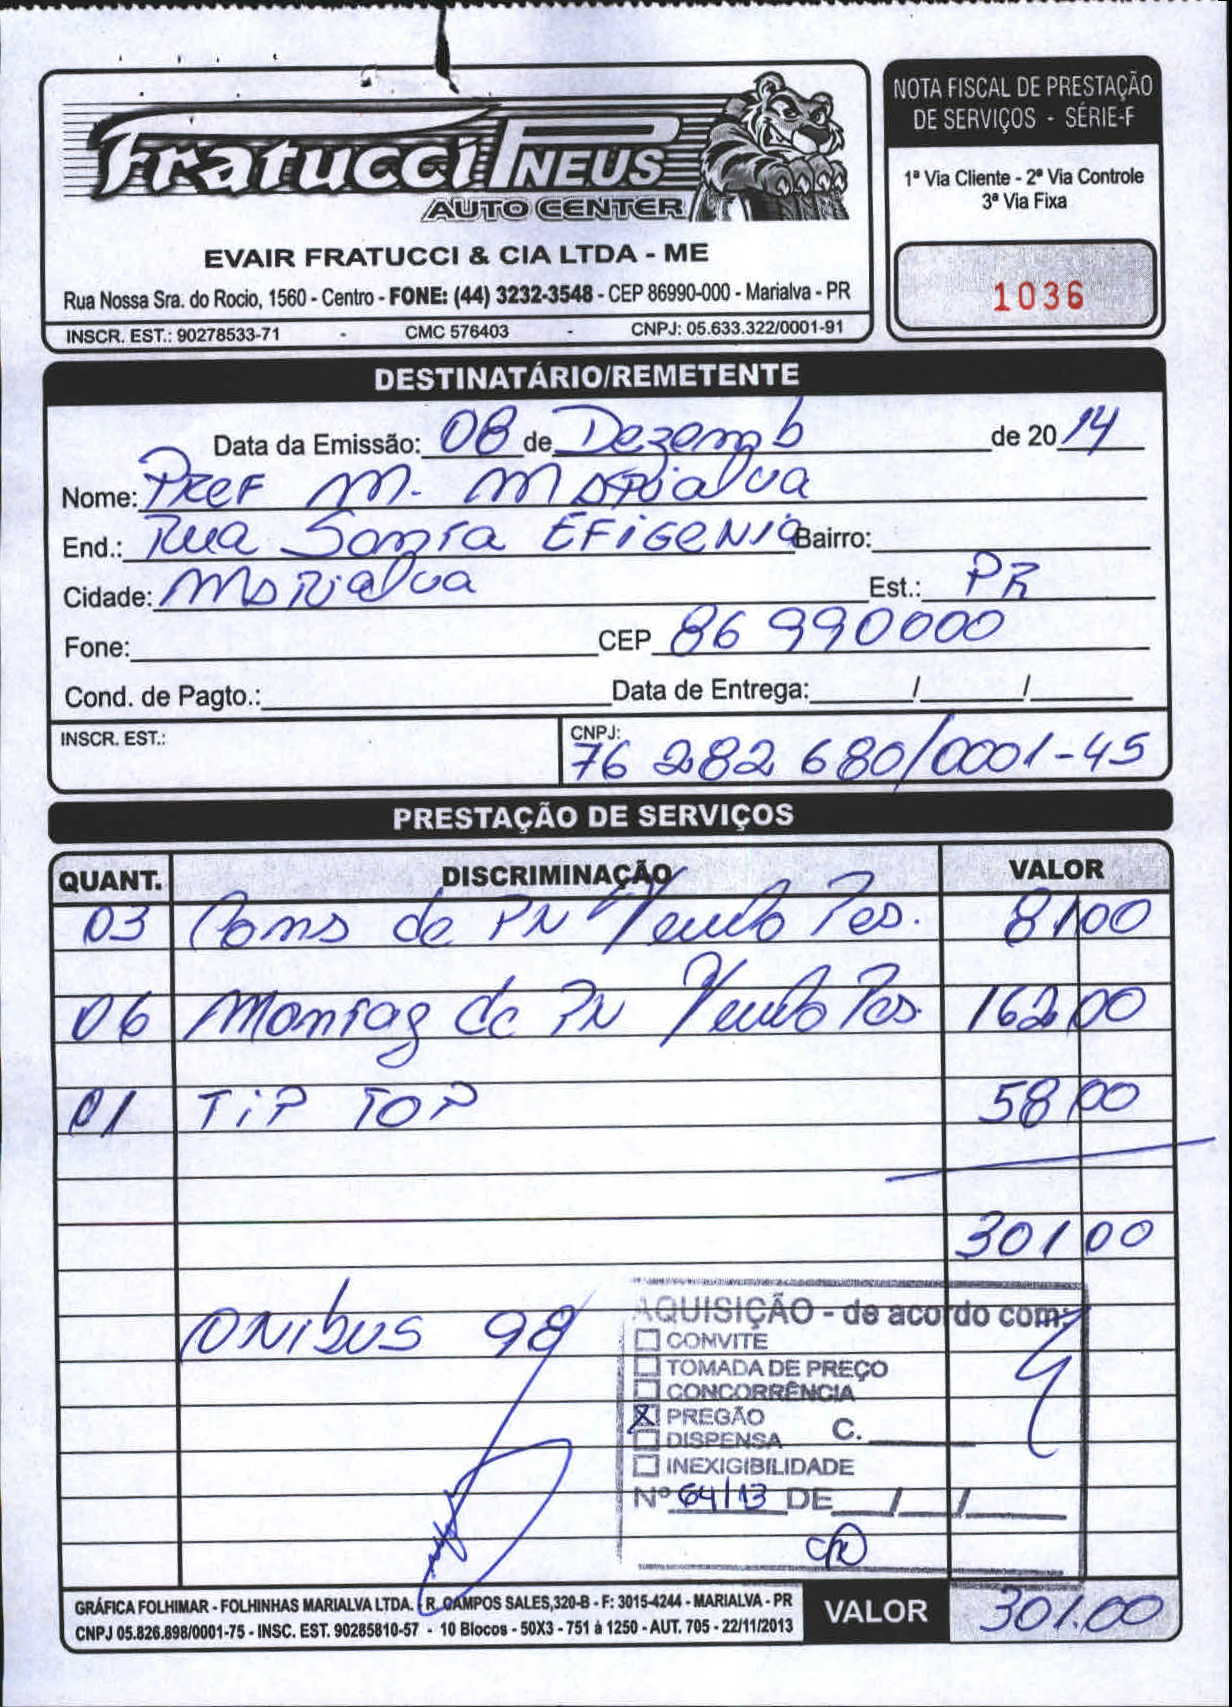 Fratucci PNEUS
AUTO CENTER
EVAIR FRATUCCI & CIA LTDA - ME
Rua Nossa Sra. do Rocio, 1560 - Centro - FONE: (44) 3232-3548 - CEP 86990-000 - Marialva - PR
INSCR. EST.: 90278533-71 - CMC 576403 - CNPJ: 05.633.322/0001-91
NOTA FISCAL DE PRESTAÇÃO
DE SERVIÇOS - SÉRIE-F
1ª Via Cliente - 2ª Via Controle
3ª Via Fixa
1036
DESTINATÁRIO/REMETENTE
Data da Emissão: 08 de Dezemb de 2014
Nome: Pref M. Marialva
End.: Rua Santa EFiGENIa Bairro:
Cidade: Marialva Est.: PR
Fone: CEP 86 990000
Cond. de Pagto.: Data de Entrega: / /
INSCR. EST.: CNPJ: 76 282 680/0001-45
PRESTAÇÃO DE SERVIÇOS
QUANT. DISCRIMINAÇÃO VALOR
03 Cons de PN Pes. 81 00
06 Montag de PN Pes. 162 00
01 TiP TOP 58 00
301 00
ONibus 98
AQUISIÇÃO - de acordo com:
CONVITE
TOMADA DE PREÇO
CONCORRÊNCIA
X PREGÃO
DISPENSA C.
INEXIGIBILIDADE
Nº 64/13 DE / /
GRÁFICA FOLHIMAR - FOLHINHAS MARIALVA LTDA. - R. CAMPOS SALES, 320-B - F: 3015-4244 - MARIALVA - PR
CNPJ 05.826.898/0001-75 - INSC. EST. 90285810-57 - 10 Blocos - 50X3 - 751 à 1250 - AUT. 705 - 22/11/2013
VALOR 301.00